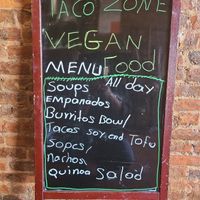 TACO ZONE
VEGAN
MENU Food
SOUPS All day
EMPANADOS
BURRITOS BOWL/
TACOS SOY and TOFU
SOPES/
NACHOS/
QUINOA SALAD